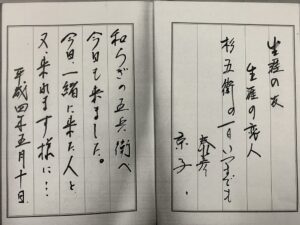 生涯の友
生涯の恋人
杉五衛の一日いつまでも
京子.
和らぎの五兵衛へ
今日も来ました。
今日、一緒に来た人と
又、来れます様に…
平成四年五月十日